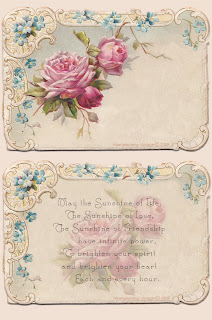 May the Sunshine of Life,
The Sunshine of Love,
The Sunshine of Friendship
have infinite power,
To brighten your spirit
and brighten your heart
Each and every hour.